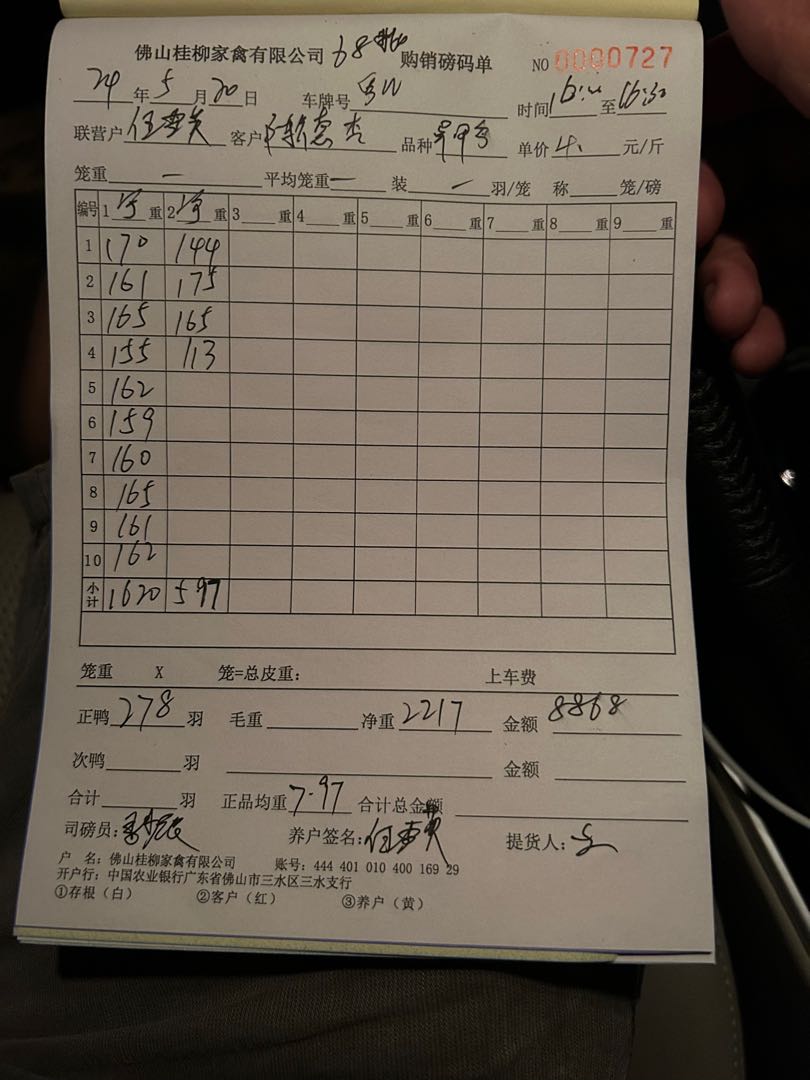 佛山桂柳家禽有限公司 68 购销磅码单 NO 0000727
24年5月20日 车牌号 时间 至16:30
联营户 客户 品种 单价4.元/斤
笼重 一 平均笼重 一 装 一 羽/笼 称 笼/磅
编号 1 重 2 重 3 重 4 重 5 重 6 重 7 重 8 重 9 重
1 170 144
2 161 175
3 165 165
4 155 113
5 162
6 159
7 160
8 165
9 161
10 162
小计 1620 597
笼重 X 笼=总皮重: 上车费
正鸭 278 羽 毛重 净重 2217 金额 8868
次鸭 羽 金额
合计 羽 正品均重 7.97 合计总金额
司磅员: 养户签名: 提货人:
户 名: 佛山桂柳家禽有限公司 账号: 444 401 010 400 169 29
开户行: 中国农业银行广东省佛山市三水区三水支行
①存根(白) ②客户(红) ③养户(黄)